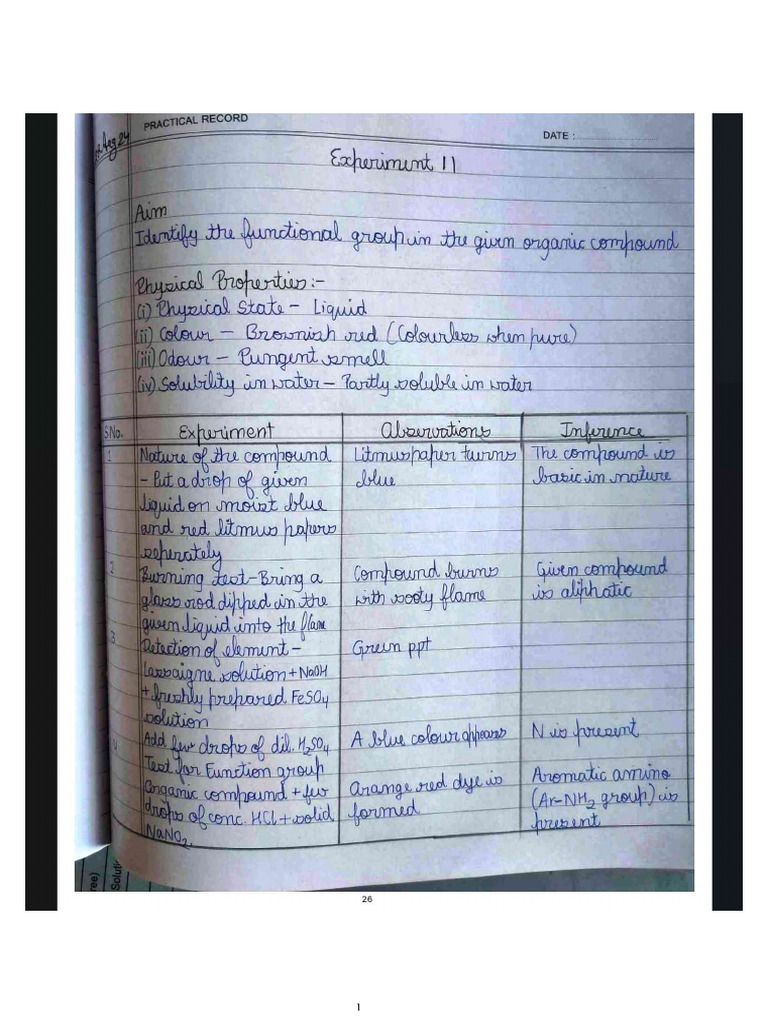 Aug 24
PRACTICAL RECORD
DATE :
Experiment 11
Aim
Identify the functional group in the given organic compound
Physical Properties:-
(i) Physical State - Liquid
(ii) Colour - Brownish red (Colourless when pure)
(iii) Odour - Pungent smell
(iv) Solubility in water - Partly soluble in water
S.No. Experiment Observations Inference
1 Nature of the compound Litmus paper turns The compound is
- Put a drop of given blue basic in nature
liquid on moist blue
and red litmus papers
seperately
2 Burning test - Bring a Compound burns Given compound
glass rod dipped in the with sooty flame is aliphatic
given liquid into the flame
3 Detection of element - Green ppt
Lassaigne solution + NaOH
+ freshly prepared FeSO4
solution
Add few drops of dil. H2SO4 A blue colour appears N is present
4 Test for Function group
Organic compound + few Orange red dye is Aromatic amino
drops of conc. HCl + solid formed (Ar-NH2 group) is
NaNO2. present
ree)
Soluti
26
1